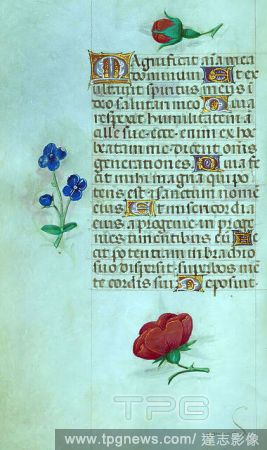 Magnificat aīa mea
dominum Et ex
ultauit spiritus meus i
deo salutari meo Quia
respexit humilitatem
ancille sue ecce enim ex hoc
beatam me dicent oms
generationes Quia fe
cit mihi magna qui po
tens est & sanctum nomē
eius Et misericordia
eius a progenie in proge
nies timentibus eū Fe
cit potentiam in brachio
suo dispersit superbos me
te cordis sui Deposuit
TPG
www.tpgnews.com / 達志影像